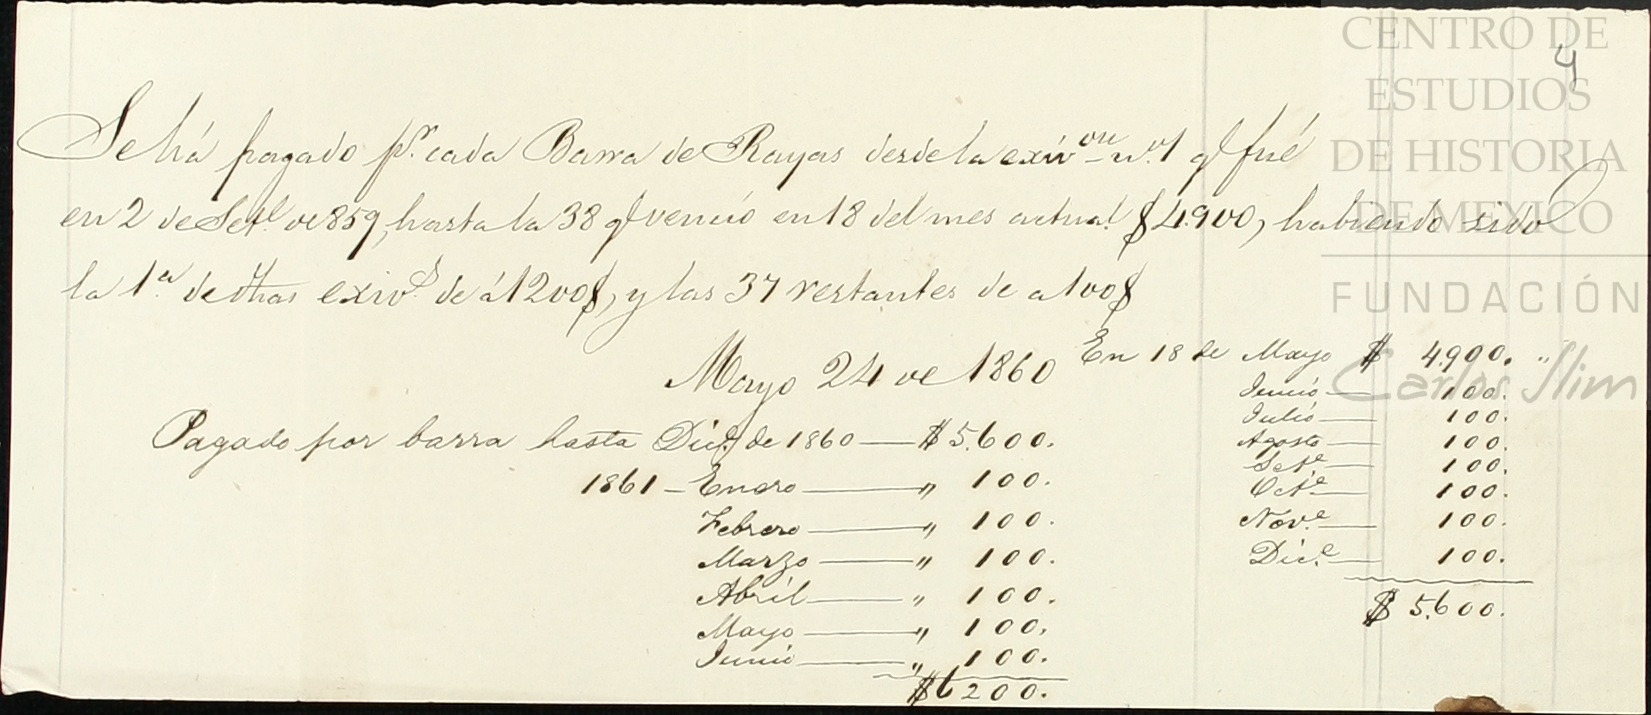 CENTRO DE
ESTUDIOS
DE HISTORIA
DE MEXICO
FUNDACIÓN
Carlos Slim
4
Se há pagado pr. cada Barra de Rayas desde la exivon no. 1 q fué
en 2 de Sete. de 859, hasta la 38 q venció en 18 del mes actual $ 4.900, habiendo sido
la 1a. de dhas exivs. de á 1200$, y las 37 restantes de a 100$
Mayo 24 de 1860
En 18 de Mayo $ 4.900. "
Junio — 100.
Julio — 100.
Agosto — 100.
Sete. — 100.
Octe. — 100.
Nove. — 100.
Dice. — 100.
$ 5.600.
Pagado por barra hasta Dice. de 1860 — $ 5.600.
1861 — Enero — " 100.
Febrero — " 100.
Marzo — " 100.
Abril — " 100.
Mayo — " 100.
Junio — " 100.
$ 6200.